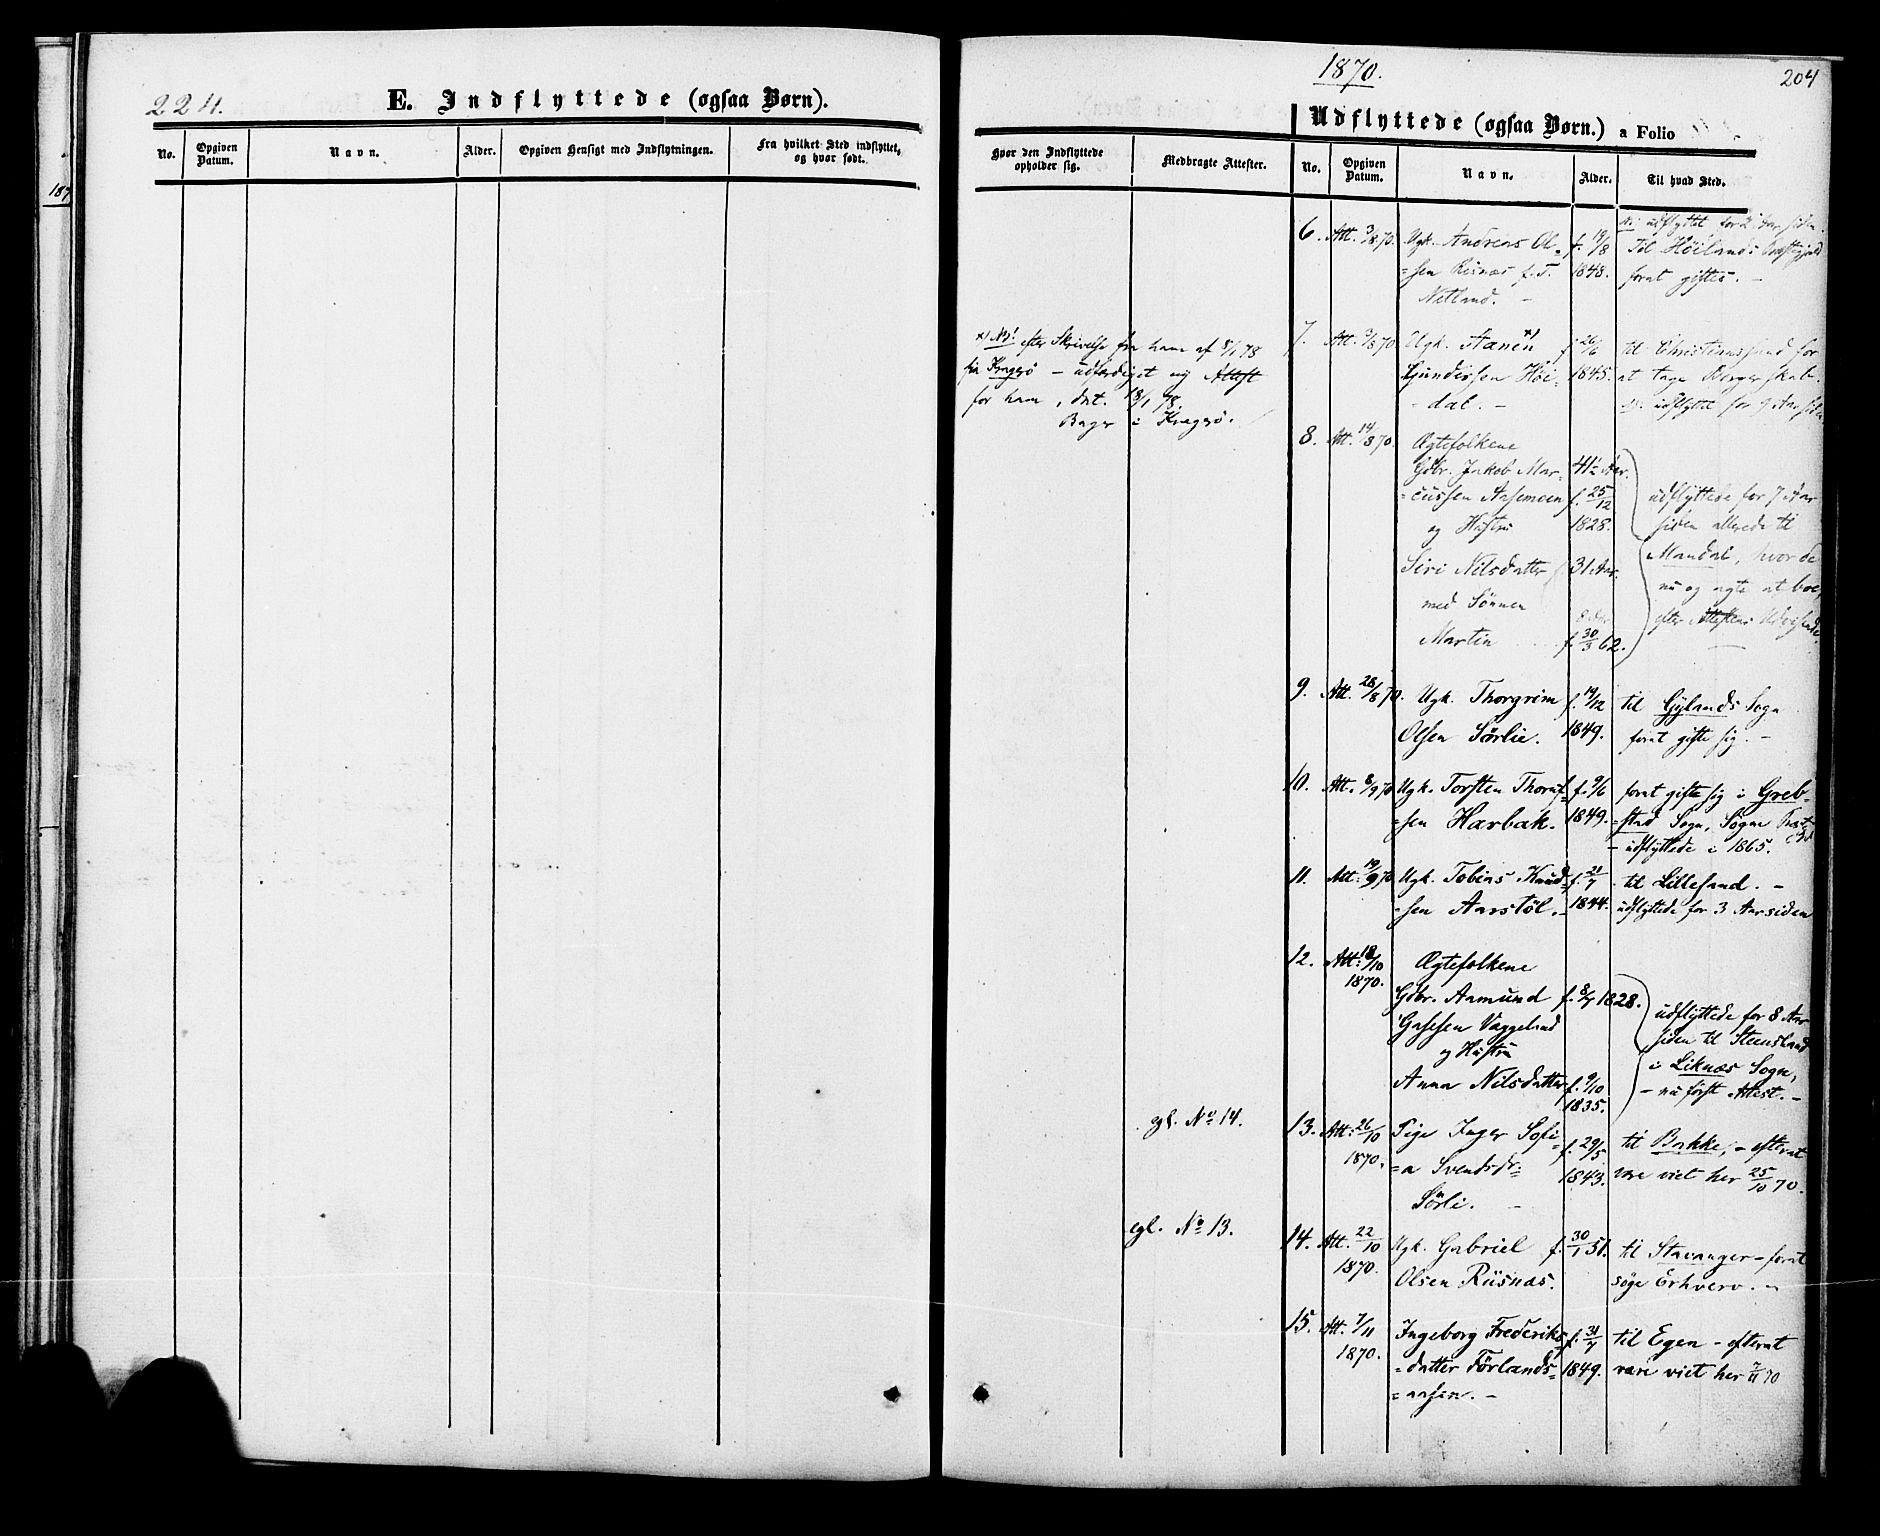 224.
E. Indflyttede (ogsaa Børn).
No.
Opgiven Datum.
Navn.
Alder.
Opgiven Hensigt med Indflytningen.
Fra hvilket Sted indflyttet, og hvor født.
1870.
204
Udflyttede (ogsaa Børn.) a Folio
Hvor den Indflyttede opholder sig.
Medbragte Attester.
No.
Opgiven Datum.
Navn.
Alder.
Til hvad Sted.
6. Att. 3/8 70. Ugk. Andreas Ol= f. 19/8 udflyttet for 2 Aar siden.
=sen Risnæs f. T. 1848. Til Høilands Præstegjeld
Netland. – forat giftes. –
x) NB! efter Skrivelse fra ham af 8/1 78
fra Kragerø – udfærdiget ny Attest
for ham, dat. 18/1 78.
Bager i Kragerø.
7. Att. 3/8 70 Ugk. Aanen x) f. 26/6 til Christianssand for
Gundersen Høi= 1845. at tage Borgerskab.
=dal. – udflyttet for 9 Aar siden
8. Att. 14/8 70. Ægtefolkene
Gdbr. Jakob Mar= 41½ Aar.
=cussen Aasemoen f. 25/12 udflyttede for 7 Aar
og Hustru 1828. siden allerede til
Siri Nilsdatter 31 Aar. Mandal, hvor de
med Sønnen nu og agte at boe,
Martin 8 Aar f. 30/3 62. efter Attestens Udvisende.
9. Att. 28/8 70. Ugk. Thorgrim f. 19/12 til Gylands Sogn
Olsen Sørlie. 1849. forat gifte sig. –
10. Att. 8/9 70 Ugk. Torsten Thorst= f. 9/6 forat gifte sig i Greb=
=sen Harbak. 1849. =stad Sogn, Søgne
– udflyttede i 1865.
11. Att. 19/9 70 Ugk. Tobias Knud= f. 21/7 til Lillesand. –
=sen Aarstøl. – 1844. udflyttede for 3 Aar siden
12. Att. 18/10 1870. Ægtefolkene
Gdbr. Aamund f. 8/7 1828. udflyttede for 8 Aar
Gasesen Væggeland siden til Steensland
og Hustru i Liknæs Sogn,
Anna Nilsdatter f. 9/10 1835. – nu først Attest. –
cgl. No 14.
13. Att. 26/10 1870. Pige Inger Sofi= f. 29/5 til Bakke, – efterat
=a Svendsdr. 1843. være viet her 25/10 70.
Sørli. –
cgl. No 13.
14. Att. 22/10 1870. Ugk. Gabriel f. 30/1 51. til Stavanger – forat
Olsen Riisnæs. søge Erhverv. –
15. Att. 7/11 1870. Ingeborg Frederiks= f. 31/7 til Egen – efterat
=datter Førlands= 1849. være viet her 7/11 70
=aasen. –